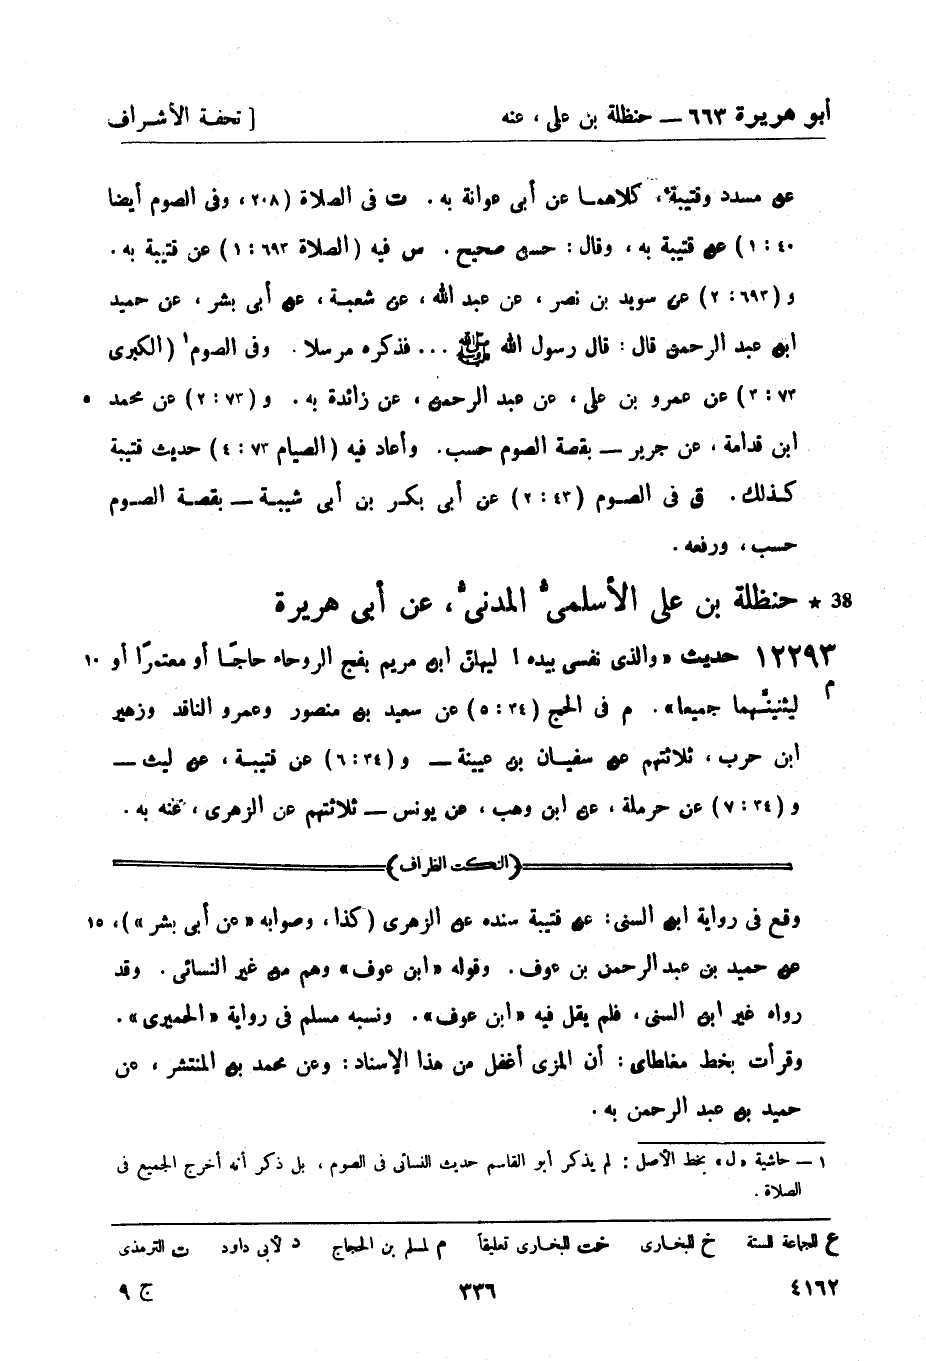 أبو هريرة ٦٦٣ — حنظلة بن على ، عنه [ تحفة الأشراف
عن مسدد وقتيبة، كلاهما عن أبى عوانة به . ت فى الصلاة (٢٠٨ ، وفى الصوم أيضا
٤٠ : ١) عن قتيبة به ، وقال : حسن صحيح . س فيه (الصلاة ٦٩٣ : ١) عن قتيبة به .
و (٦٩٣ : ٢) عن سويد بن نصر ، عن عبد الله ، عن شعبة ، عن أبى بشر ، عن حميد
ابن عبد الرحمن قال : قال رسول الله ﷺ ... فذكره مرسلا . وفى الصوم ١ (الكبرى
٧٣ : ٣) عن عمرو بن على ، عن عبد الرحمن ، عن زائدة به . و (٧٣ : ٢) عن محمد ٥
ابن قدامة ، عن جرير — بقصة الصوم حسب . وأعاد فيه (الصيام ٧٣ : ٤) حديث قتيبة
كذلك . ق فى الصوم (٤٣ : ٢) عن أبى بكر بن أبى شيبة — بقصة الصوم
حسب ، ورفعه .
38 * حنظلة بن على الأسلمى المدنى ، عن أبى هريرة
١٢٢٩٣ حديث «والذى نفسى بيده ! ليهلن ابن مريم بفج الروحاء حاجًا أو معتمرًا أو ١٠
م ليثنينّهما جميعا» . م فى الحج (٣٤ : ٥) عن سعيد بن منصور وعمرو الناقد وزهير
ابن حرب ، ثلاثتهم عن سفيان بن عيينة — و (٣٤ : ٦) عن قتيبة ، عن ليث —
و (٣٤ : ٧) عن حرملة ، عن ابن وهب ، عن يونس — ثلاثتهم عن الزهرى ، عنه به .
(النكت الظراف)
وقع فى رواية ابن السنى : عن قتيبة سنده عن الزهرى (كذا ، وصوابه «عن أبى بشر») ، ١٥
عن حميد بن عبد الرحمن بن عوف . وقوله «ابن عوف» وهم من غير النسائى . وقد
رواه غير ابن السنى ، فلم يقل فيه «ابن عوف» . ونسبه مسلم فى رواية «الحميرى» .
وقرأت بخط مغلطاى : أن المزى أغفل من هذا الإسناد : وعن محمد بن المنتشر ، عن
حميد بن عبد الرحمن به .
١ — حاشية «ل» بخط الأصل : لم يذكر أبو القاسم حديث النسائى فى الصوم ، بل ذكر أنه أخرج الجميع فى
الصلاة .
ع للجماعة الستة خ للبخارى خت للبخارى تعليقاً م لمسلم بن الحجاج د لأبى داود ت الترمذى
٤١٦٢ ٣٣٦ ج ٩